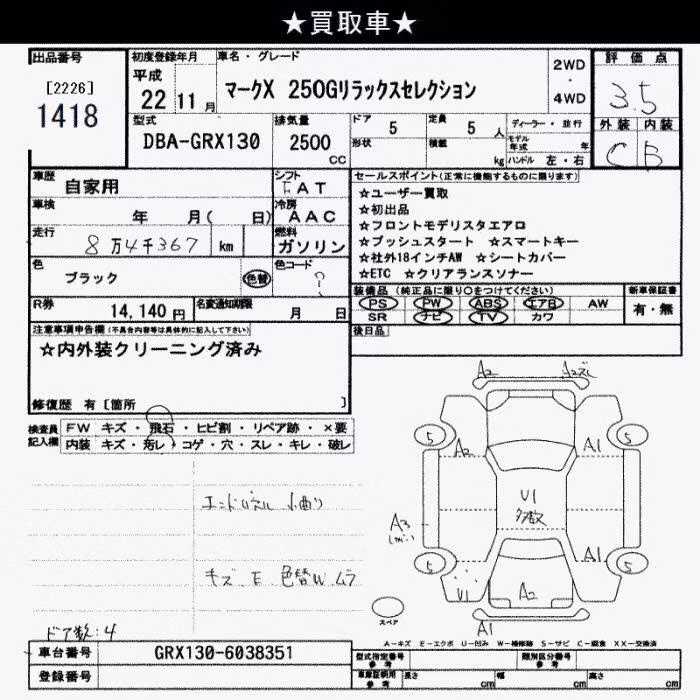 ★買取車★
出品番号
[2226]
1418
初度登録年月
平成
22 11 月
車名・グレード
マークX 250Gリラックスセレクション
2WD
・
4WD
評価点
3.5
外装 内装
C B
型式
DBA-GRX130
排気量
2500
CC
ドア 5
形状
定員 5 人
積載 kg
ディーラー・並行
モデル年式 年
ハンドル 左・右
車歴
自家用
シフト
FAT
車検
年 月( 日)
冷房
AAC
走行
8万4千367 km
燃料
ガソリン
色
ブラック
色替
色コード
?
R券
14,140 円
名変通知期限
月 日
セールスポイント(正常に機能するものに限ります)
☆ユーザー買取
☆初出品
☆フロントモデリスタエアロ
☆プッシュスタート ☆スマートキー
☆社外18インチAW ☆シートカバー
☆ETC ☆クリアランスソナー
装備品(純正品に限り○をつけてください)
PS PW ABS エアB AW
SR ナビ TV カワ
新車保証書
有・無
後日品
注意事項申告欄(不具合内容等は具体的に記入して下さい)
☆内外装クリーニング済み
修復歴 有〔箇所 〕
検査員
記入欄
FW キズ・飛石・ヒビ割・リペア跡・×要
内装 キズ・汚レ・コゲ・穴・スレ・キレ・破レ
エンドパネル 小曲り
キズ E 色替W ムラ
ドア数:4
A2
A2ズレ
5
5
A2
A1
U1
多数
A3
A1
5
5
U1
A2
A1
スペア
A-キズ E-エクボ U-凹み W-補修跡 S-サビ C-腐食 XX-交換済
車台番号
GRX130-6038351
登録番号
型式指定番号
参考
類別区分番号
参考
車庫証明用
参考
長さ cm
幅 cm
高さ cm